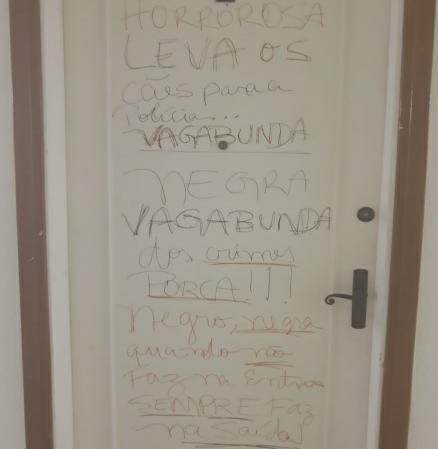 HORROROSA
LEVA OS
cães para a
Polícia...
VAGABUNDA
NEGRA
VAGABUNDA
dos crimes
PORCA!!!
Negro, negra
quando não
Faz na Entrada
SEMPRE Faz
na Saída!